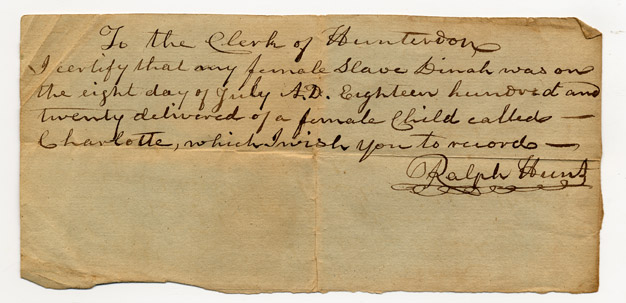 To the Clerk of Hunterdon
I certify that my female Slave Dinah was on
the eight day of July A.D. Eighteen hundred and
twenty delivered of a female Child called —
Charlotte, which I wish you to record —
Ralph Hunt